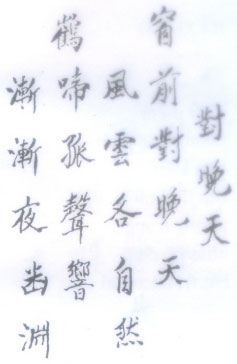 對晚天
窗前對晚天
風雲各自然
鶴啼孤聲響
漸漸夜幽淵